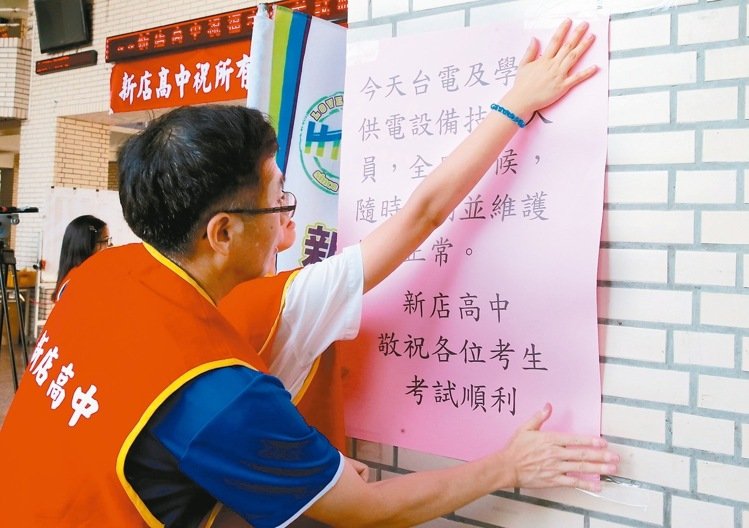 新店高中祝
新店高中祝所有
今天台電及學
供電設備技 人
員，全 候，
隨時 並維護
正常。
新店高中
敬祝各位考生
考試順利
新
新店高中